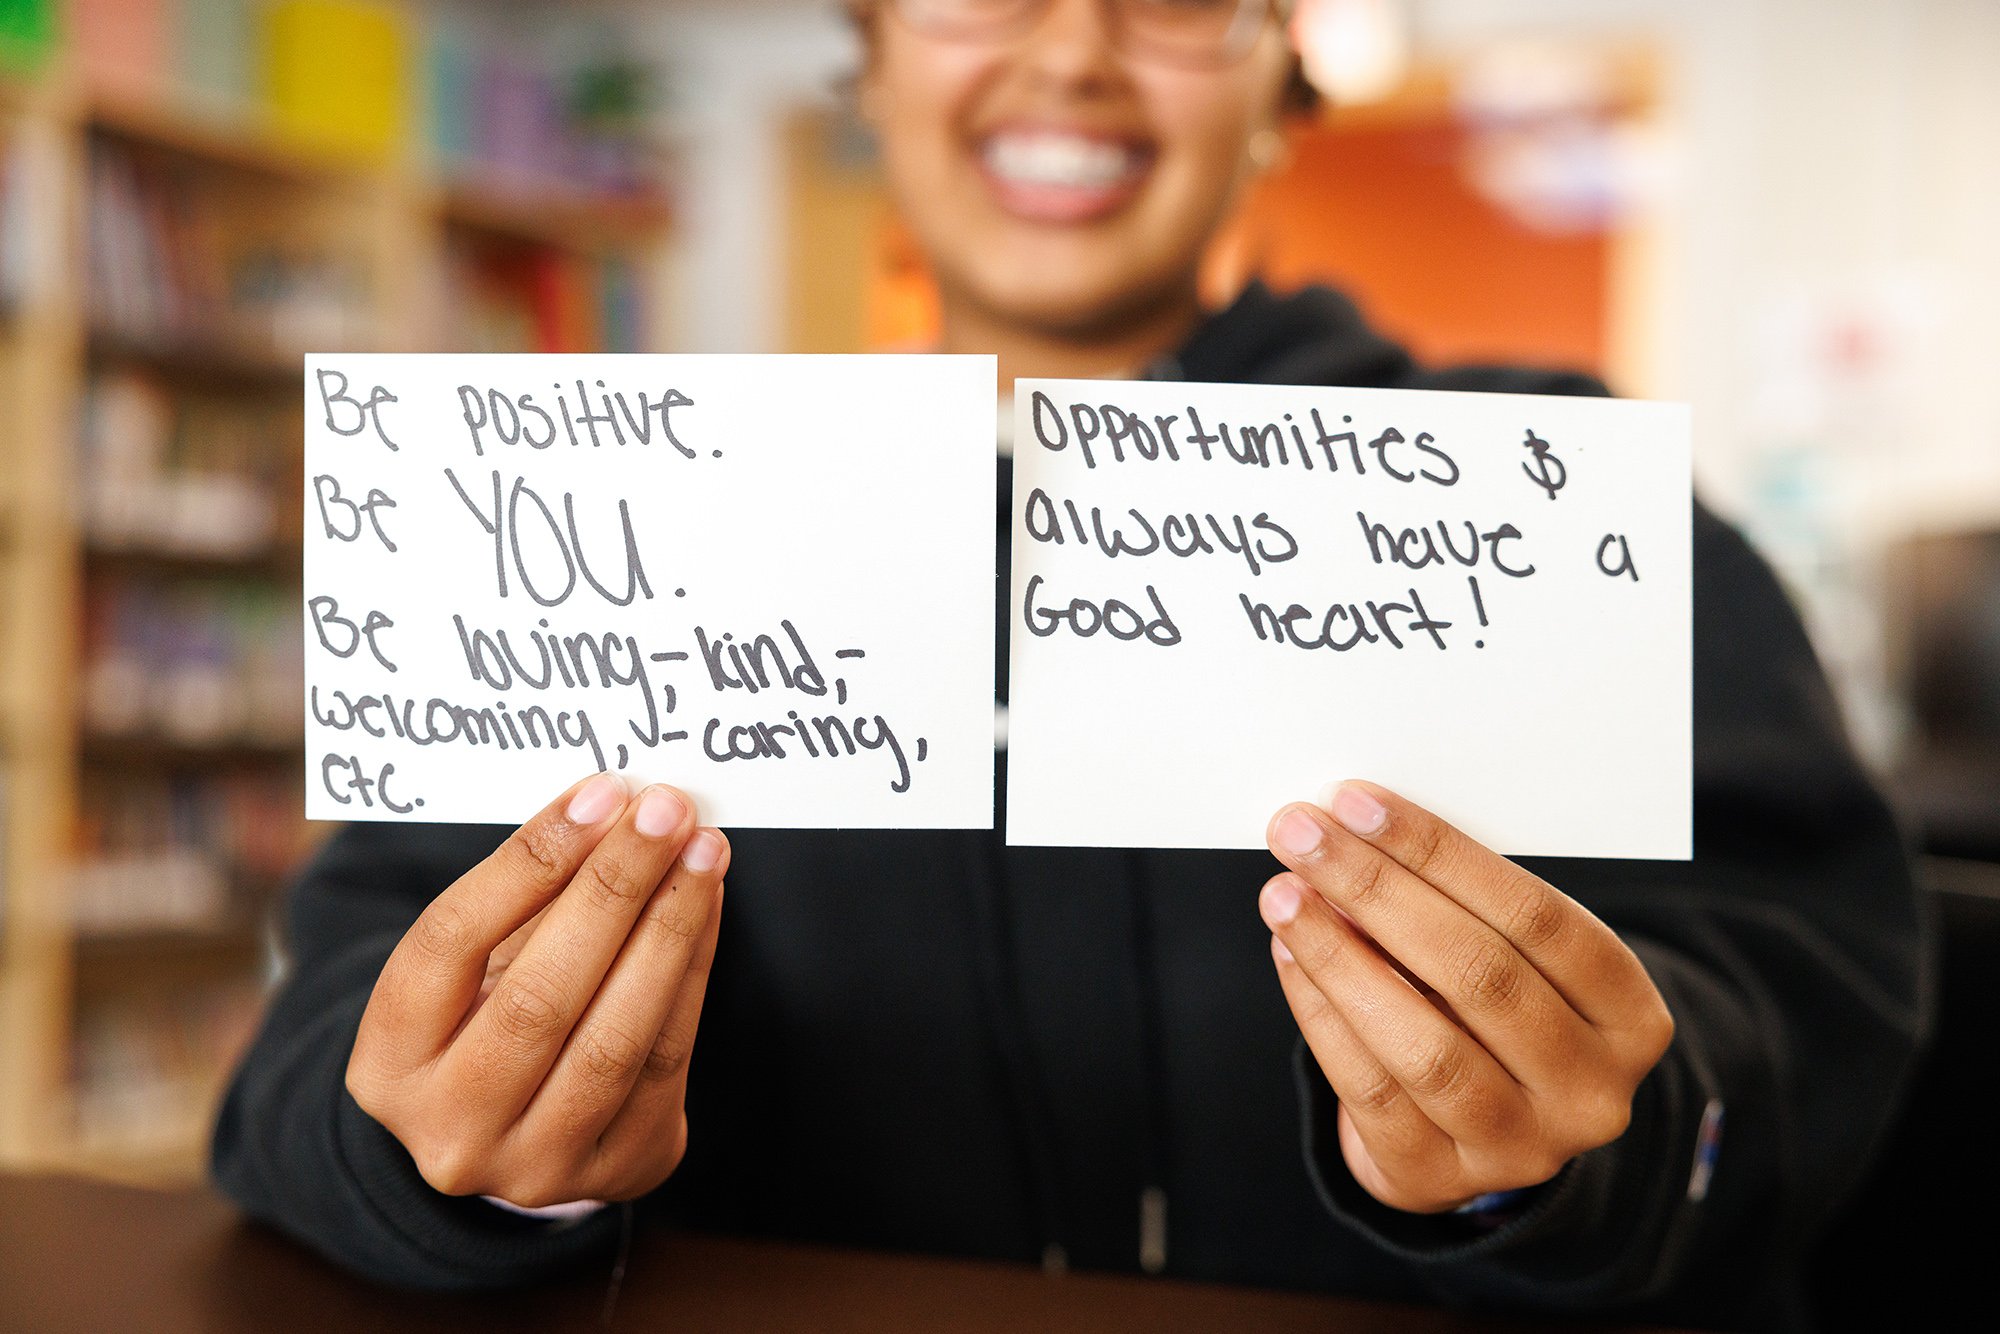 Be positive.
Be YOU.
Be loving,-kind,-
welcoming,-caring,
etc.
Opportunities &
always have a
Good heart!